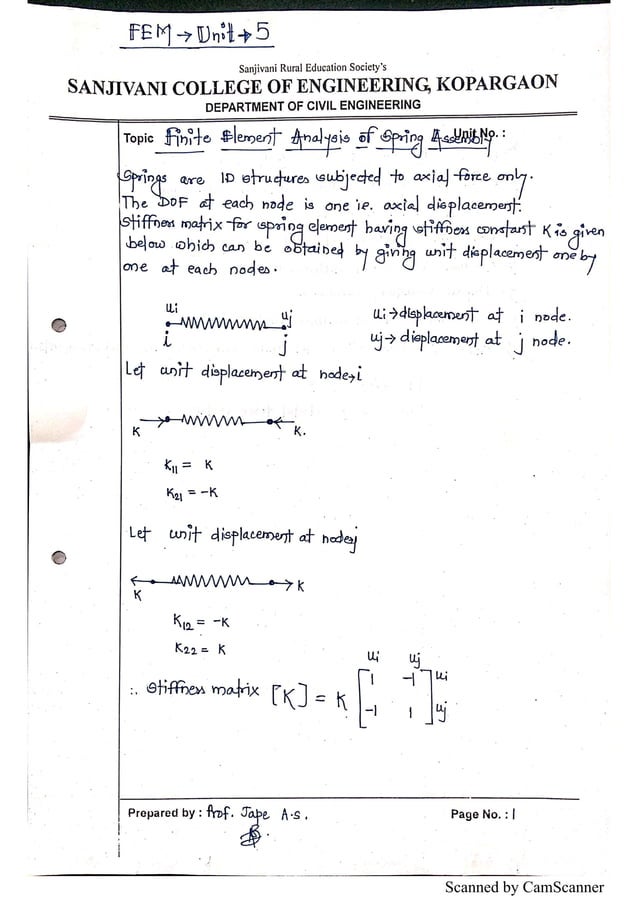 FEM → Unit → 5
Sanjivani Rural Education Society's
SANJIVANI COLLEGE OF ENGINEERING, KOPARGAON
DEPARTMENT OF CIVIL ENGINEERING
Topic Finite Element Analysis of Spring Assembly Unit No. :
Springs are 1D structures subjected to axial force only.
The DOF at each node is one ie. axial displacement.
Stiffness matrix for spring element having stiffness constant K is given
below which can be obtained by giving unit displacement one by
one at each nodes.
ui uj ui → displacement at i node.
i j uj → displacement at j node.
Let unit displacement at node → i
K K.
K11 = K
K21 = -K
Let unit displacement at node j
K K
K12 = -K
K22 = K
ui uj
∴ Stiffness matrix [K] = K [ 1 -1 ] ui
[ -1 1 ] uj
Prepared by : Prof. Jape A.S. Page No. : 1
Scanned by CamScanner